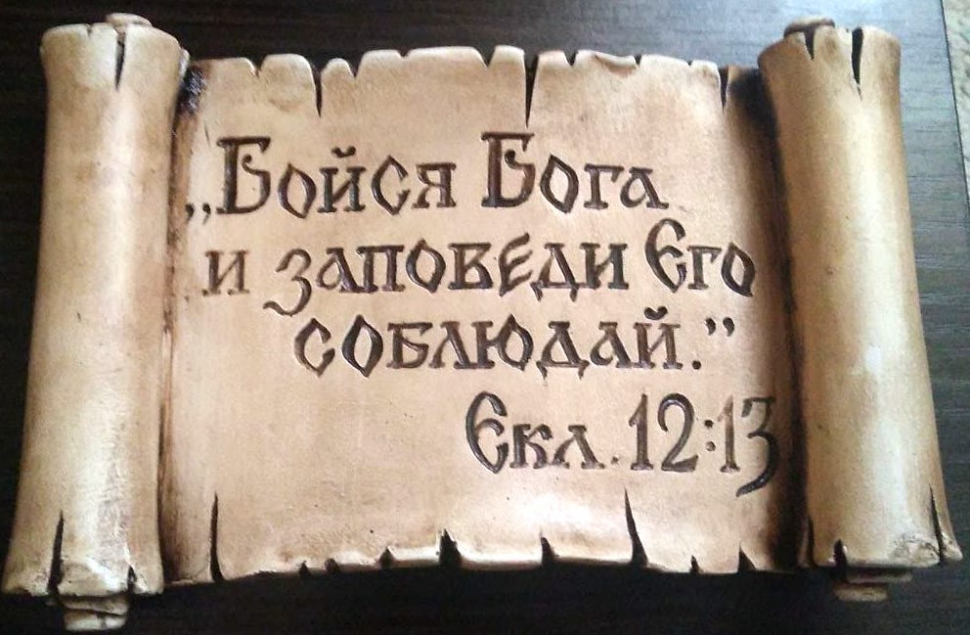 „Бойся Бога
и заповеди Его
соблюдай.”
Екл. 12:13